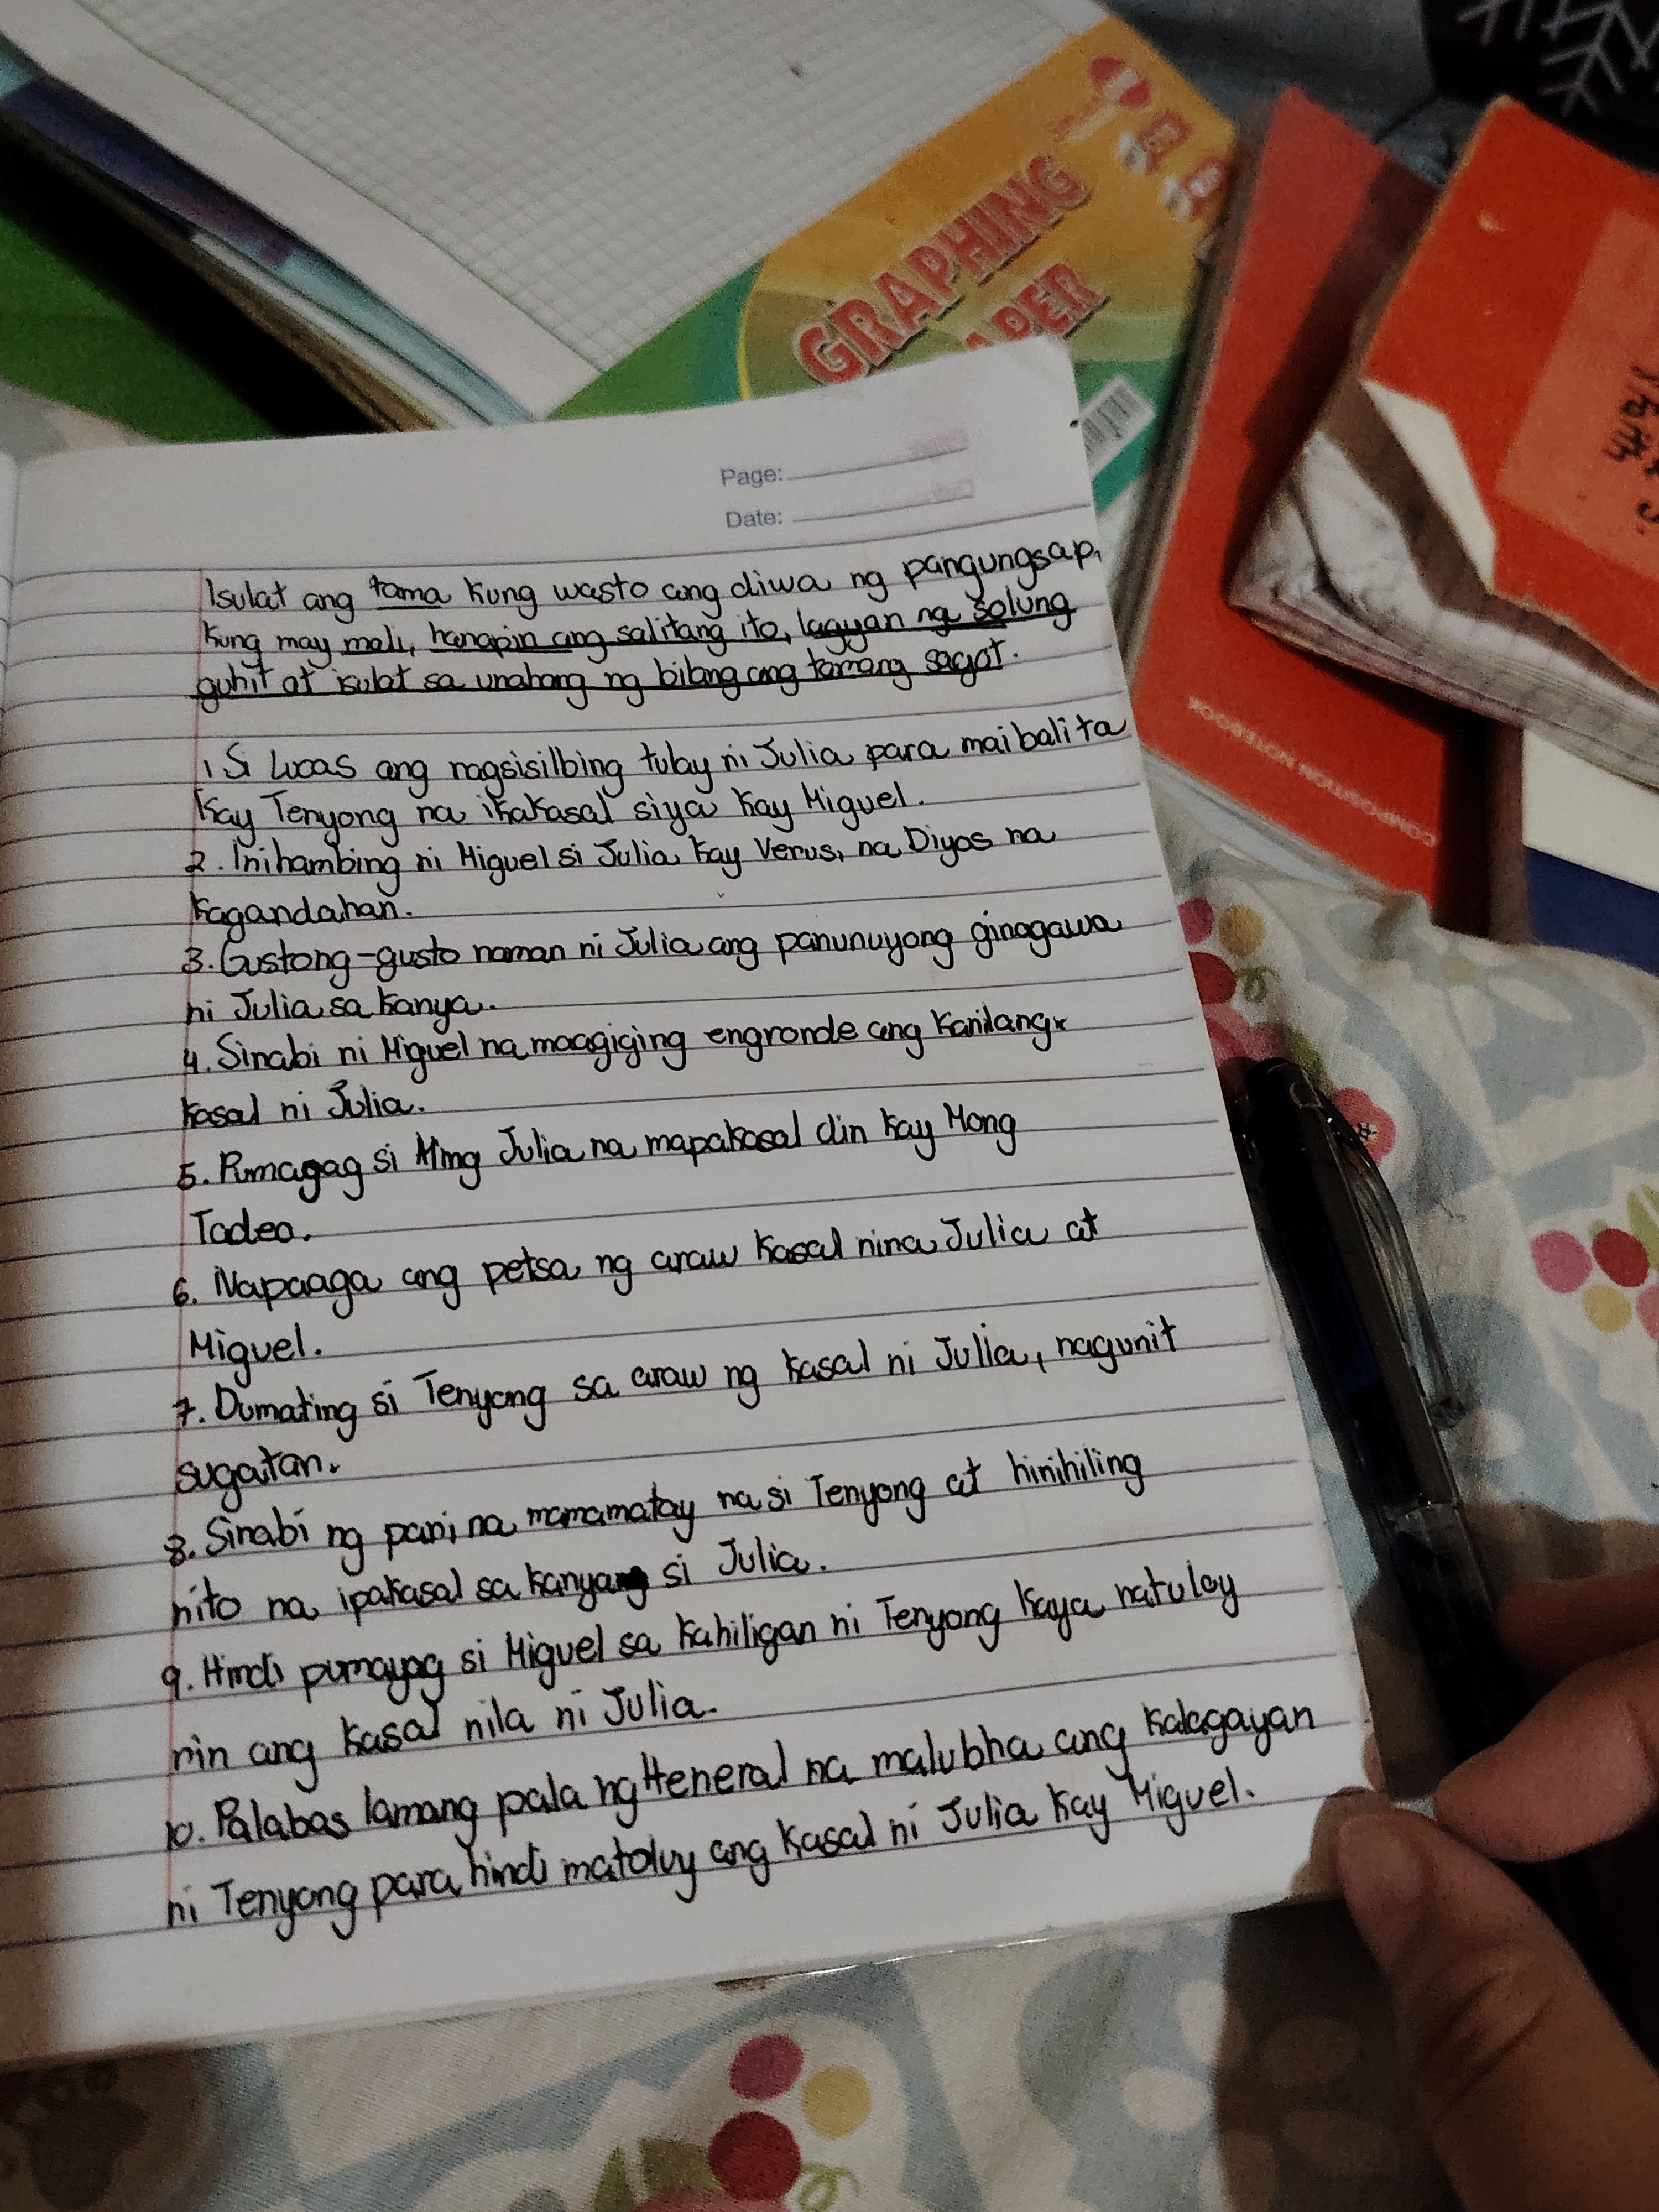 GRAPHING
APER
COMPOSITION NOTEBOOK
Page:
Date:
Isulat ang tama kung wasto ang diwa ng pangungsap,
kung may mali, hanapin ang salitang ito, lagyan ng solung
guhit at isulat sa unahang ng bilang ang tamang sagot.
1 Si Lucas ang nagsisilbing tulay ni Julia para maibalita
kay Tenyong na ikakasal siya kay Miguel.
2. Inihambing ni Miguel si Julia kay Verus, na Diyos na
kagandahan.
3. Gustong-gusto naman ni Julia ang panunuyong ginagawa
ni Julia sa kanya.
4. Sinabi ni Miguel na maagiging engronde ang kanilang
kasal ni Julia.
5. Pumagag si Aling Julia na mapakasal din kay Mong
Tadeo.
6. Napaaga ang petsa ng araw kasal nina Julia at
Miguel.
7. Dumating si Tenyong sa araw ng kasal ni Julia, nagunit
sugatan.
8. Sinabi ng pari na mamamatay na si Tenyong at hinihiling
nito na ipakasal sa kanyang si Julia.
9. Hindi pumayag si Miguel sa kahiligan ni Tenyong kaya natuloy
rin ang kasal nila ni Julia.
10. Palabas lamang pala ng Heneral na malubha ang kalagayan
ni Tenyong para hindi matoluy ang kasal ni Julia kay Miguel.